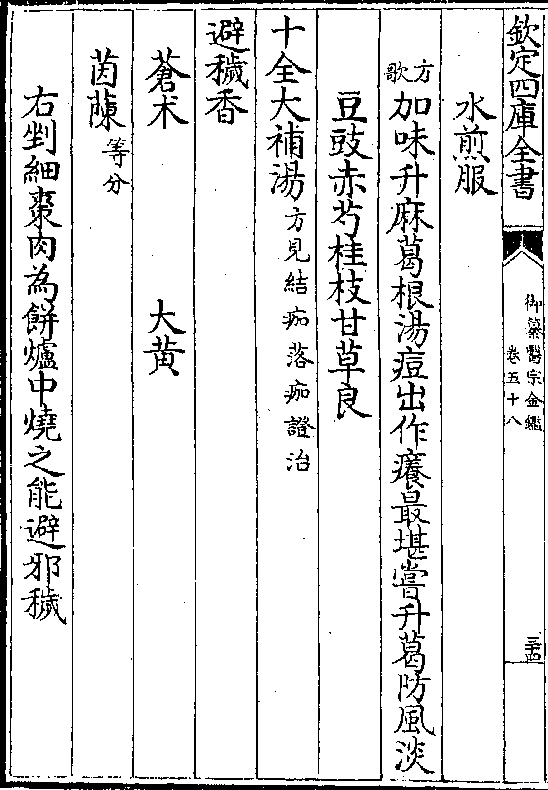 欽定四庫全書
御纂醫宗金鑑
卷五十八
三十四
水煎服
方歌
加味升麻葛根湯痘出作癢最堪嘗升葛防風淡
豆豉赤芍桂枝甘草良
十全大補湯方見結痂落痂證治
避穢香
蒼朮 大黄
茵蔯等分
右剉細棗肉為餅爐中燒之能避邪穢